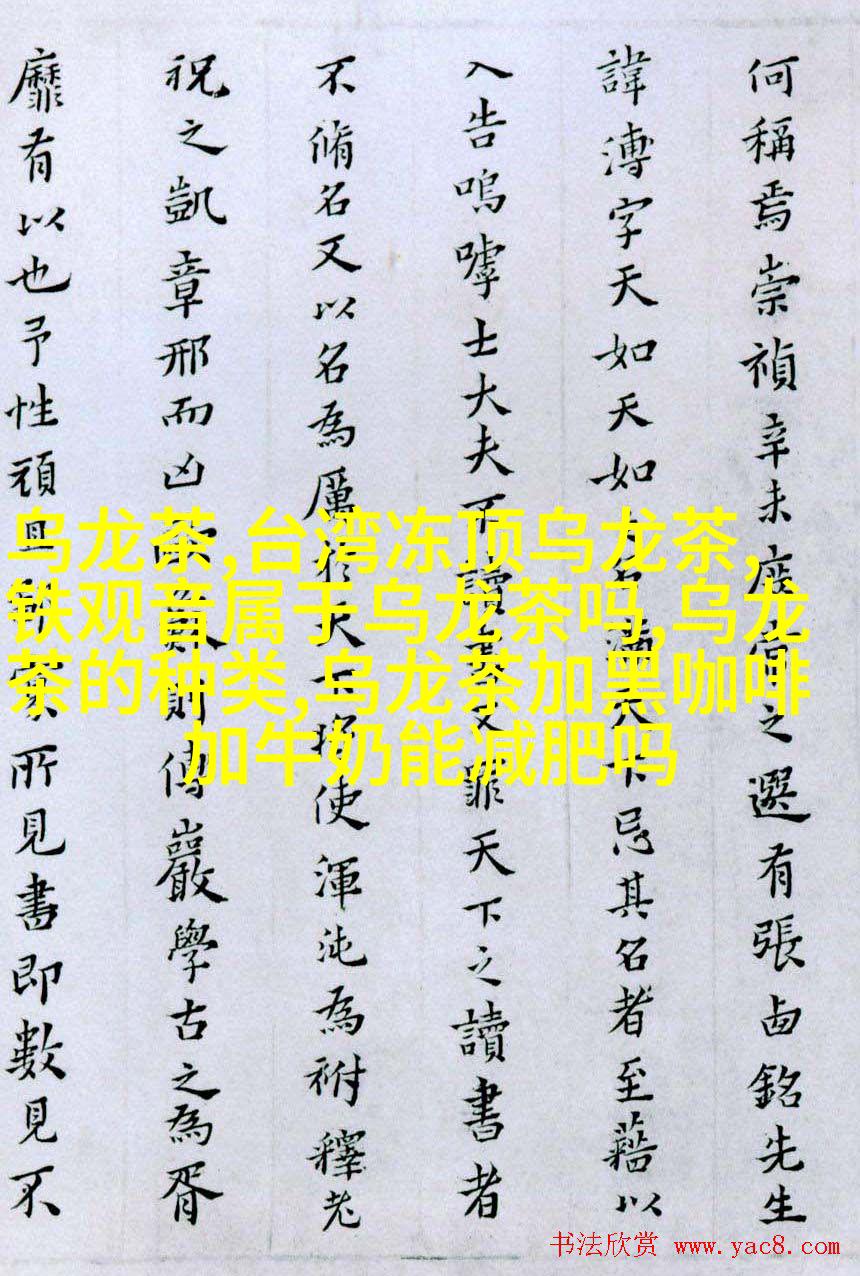 何稱焉崇禎辛未庶常之選有張卣銘先生
諱溥字天如天如名滿天下忌其名者至藉以
入告嗚嘑士大夫不讀書又罪天下之讀書者
不脩名又以名為厲於天下將使渾沌為祔釋老
祝之凱章邢而凶則傳巖學古之為胥
靡有以也予性頑且家所見書即數見不
乌龙茶,台湾冻顶乌龙茶,
铁观音属于乌龙茶吗,乌龙
茶的种类,乌龙茶加黑咖啡
加牛奶能减肥吗
书法欣赏 www.yac8.com